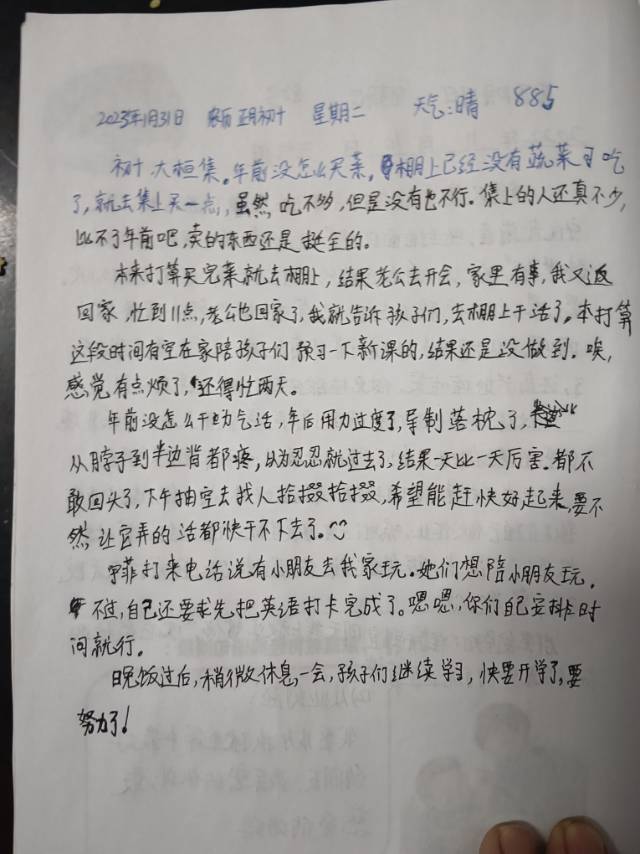 2023年1月31日 农历正月初十 星期二 天气:晴 885
初十大桓集。年前没怎么买菜,棚上已经没有蔬菜可吃
了,就去集上买一点,虽然吃不多,但是没有也不行。集上的人还真不少,
比不了年前吧,卖的东西还是挺全的。
本来打算买完菜就去棚上,结果老公去开会,家里有事,我又返
回家,忙到11点,老公也回家了,我就告诉孩子们,去棚上干活了。本打算
这段时间有空在家陪孩子们预习一下新课的,结果还是没做到。唉,
感觉有点烦了,还得忙两天。
年前没怎么干力气活,年后用力过度了,导制落枕了,
从脖子到半边背都疼,以为忍忍就过去了,结果一天比一天厉害。都不
敢回头了,下午抽空去找人拾掇拾掇,希望能赶快好起来,要不
然让它弄的活都快干不下去了。
宇菲打来电话说有小朋友去我家玩。她们想陪小朋友玩。
不过,自己还要求先把英语打卡完成了。嗯嗯,你们自己安排时
间就行。
晚饭过后,稍微休息一会,孩子们继续学习,快要开学了,要
努力了!